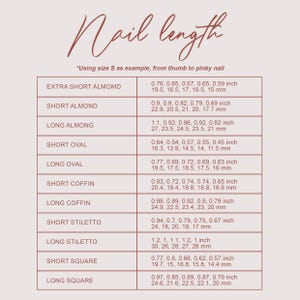 Nail length
*Using size S as example, from thumb to pinky nail
EXTRA SHORT ALMOMD
0.76, 0.65, 0.67, 0.65, 0.59 inch
19.5, 16.5, 17, 16.5, 15 mm
SHORT ALMOND
0.9, 0.8, 0.82, 0.79, 0.69 inch
22.9, 20.5, 21, 20, 17.7 mm
LONG ALMONG
1.1, 0.92, 0.96, 0.92, 0.82 inch
27, 23.5, 24.5, 23.5, 21 mm
SHORT OVAL
0.64, 0.54, 0.57, 0.55, 0.45 inch
16.3, 13.9, 14.5, 14, 11.5 mm
LONG OVAL
0.77, 0.69, 0.72, 0.69, 0.63 inch
19.5, 17.5, 18.5, 17.5, 16 mm
SHORT COFFIN
0.93, 0.72, 0.74, 0.74, 0.65 inch
20.4, 18.4, 18.8, 18.8, 16.6 mm
LONG COFFIN
0.98, 0.89, 0.92, 0.9, 0.79 inch
24.9, 22.5, 23.4, 23, 20 mm
SHORT STILETTO
0.94, 0.7, 0.79, 0.75, 0.67 inch
24, 18, 20, 19, 17 mm
LONG STILETTO
1.2, 1, 1.1, 1.2, 1 inch
30, 26, 28, 27, 26 mm
SHORT SQUARE
0.77, 0.6, 0.66, 0.62, 0.57 inch
19.7, 15, 16.8, 15.8, 14.4 mm
LONG SQUARE
0.97, 0.85, 0.89, 0.87, 0.79 inch
24.6, 21.6, 22.5, 22.1, 20 mm